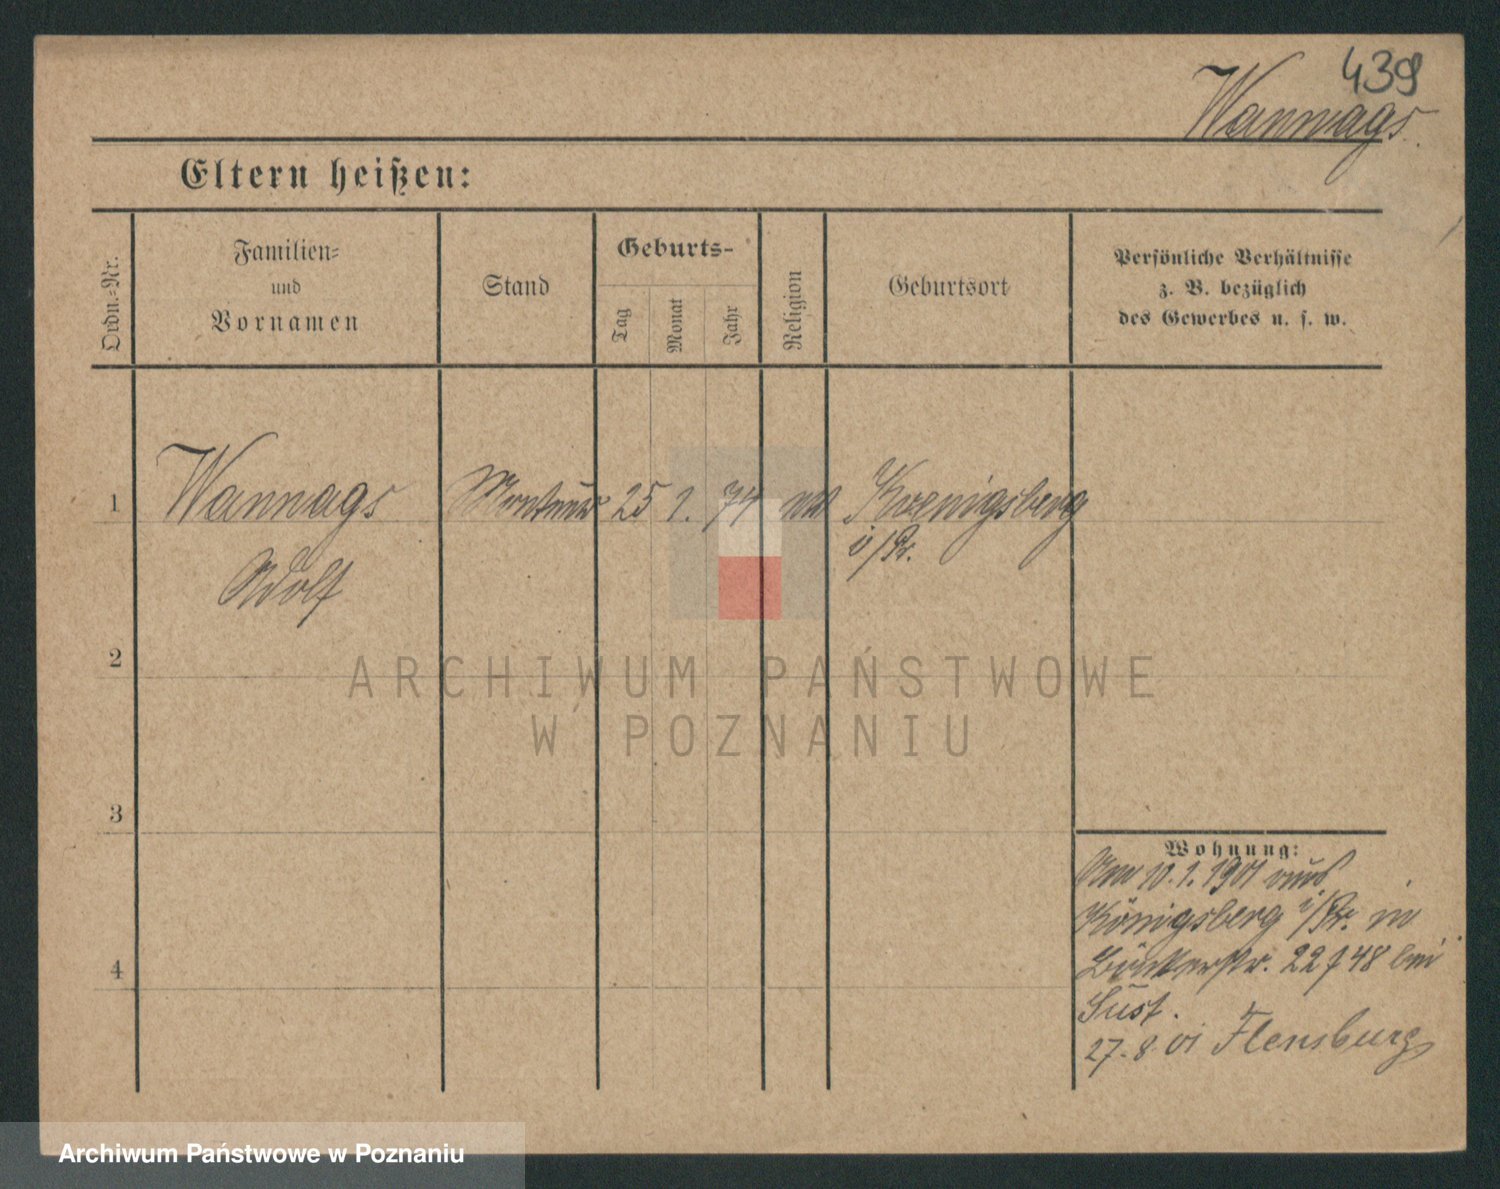 439
Wannags
Eltern heißen:
Ordn.-Nr.
Familien-
und
Vornamen
Stand
Geburts-
Tag
Monat
Jahr
Religion
Geburtsort
Persönliche Verhältnisse
z. B. bezüglich
des Gewerbes u. s. w.
1 Wannags Monteur 25 1. 74 Koenigsberg
i/Pr.
Adolf
2
3
4
Wohnung:
Am 10.1.1901 aus
Königsberg i/Pr. in
22 748 bei
Just.
27.8.01 Flensburg
ARCHIWUM PAŃSTWOWE
W POZNANIU
Archiwum Państwowe w Poznaniu